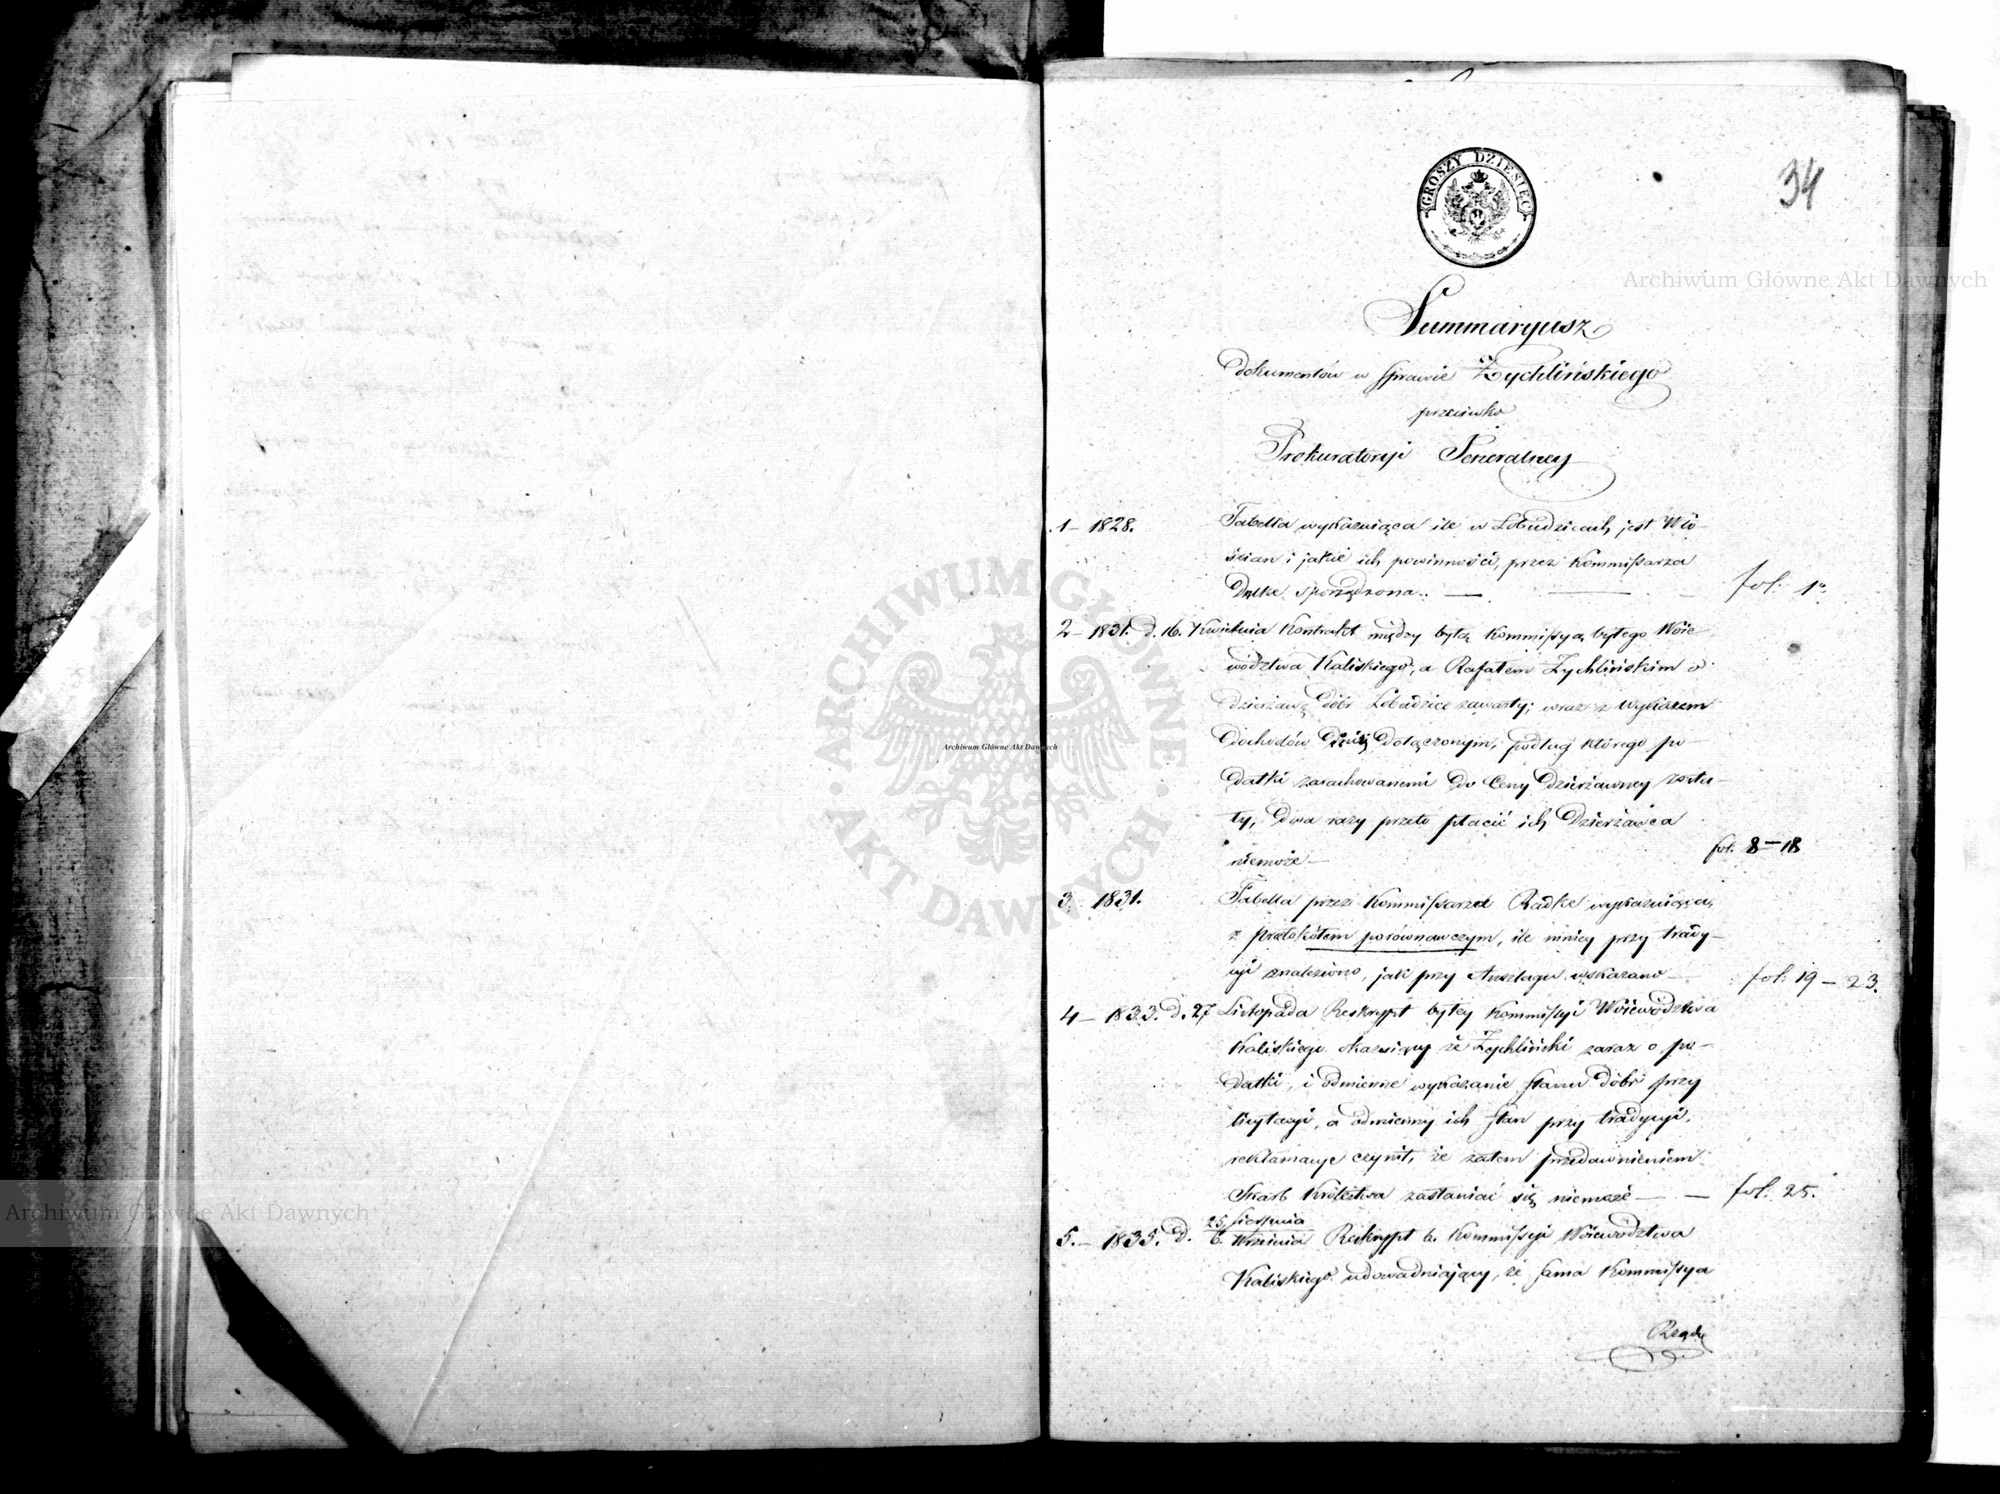 34
GROSZY DZIESIĘĆ
Summaryusz
dokumentów w sprawie Żychlińskiego
przeciwko
Prokuratoryi Generalney
1 – 1828. Tabella wykazuiąca ile w Łobudzicach jest Wło-
ścian i jakie ich powinności, przez Kommissarza
sporządzona. — fol. 1o
2 – 1831. d. 16. Kwietnia Kontrakt między byłą Kommissyą byłego Woie-
wództwa Kaliskiego, a Rafałem Żychlińskim o
dzierżawę dóbr Łobudzice zawarty; wraz z Wykazem
dochodów dołączonym, podług którego po-
datki zarachowanemi do Ceny dzierżawney zosta-
ły, dwa razy przeto płacić ich Dzierżawca
niemoże — fol. 8 – 18
3. 1831. Tabella przez Kommissarza Radke wykazuiąca,
z protokółem porównawczym, ile mniey przy trady-
cyi znaleziono, jak przy Anszlagu wskazano — fol. 19 – 23.
4 – 1833. d. 27 Listopada Reskrypt byłey Kommissyi Woiewództwa
Kaliskiego okazuiący że Żychliński zaraz o po-
datki, i odmienne wykazanie stanu dóbr przy
licytacyi, a odmienny ich stan przy tradycyi,
reklamacye czynił, że zatem przedawnieniem
Skarb Królestwa zasłaniać się niemoże — — fol. 25.
5. – 1835. d. 25 Sierpnia / 6. Września Reskrypt b. Kommissyi Woiewództwa
Kaliskiego udowadniający, że sama Kommissya
Rządu
Archiwum Główne Akt Dawnych
ARCHIWUM GŁÓWNE · AKT DAWNYCH ·
Archiwum Główne Akt Dawnych
Archiwum Główne Akt Dawnych